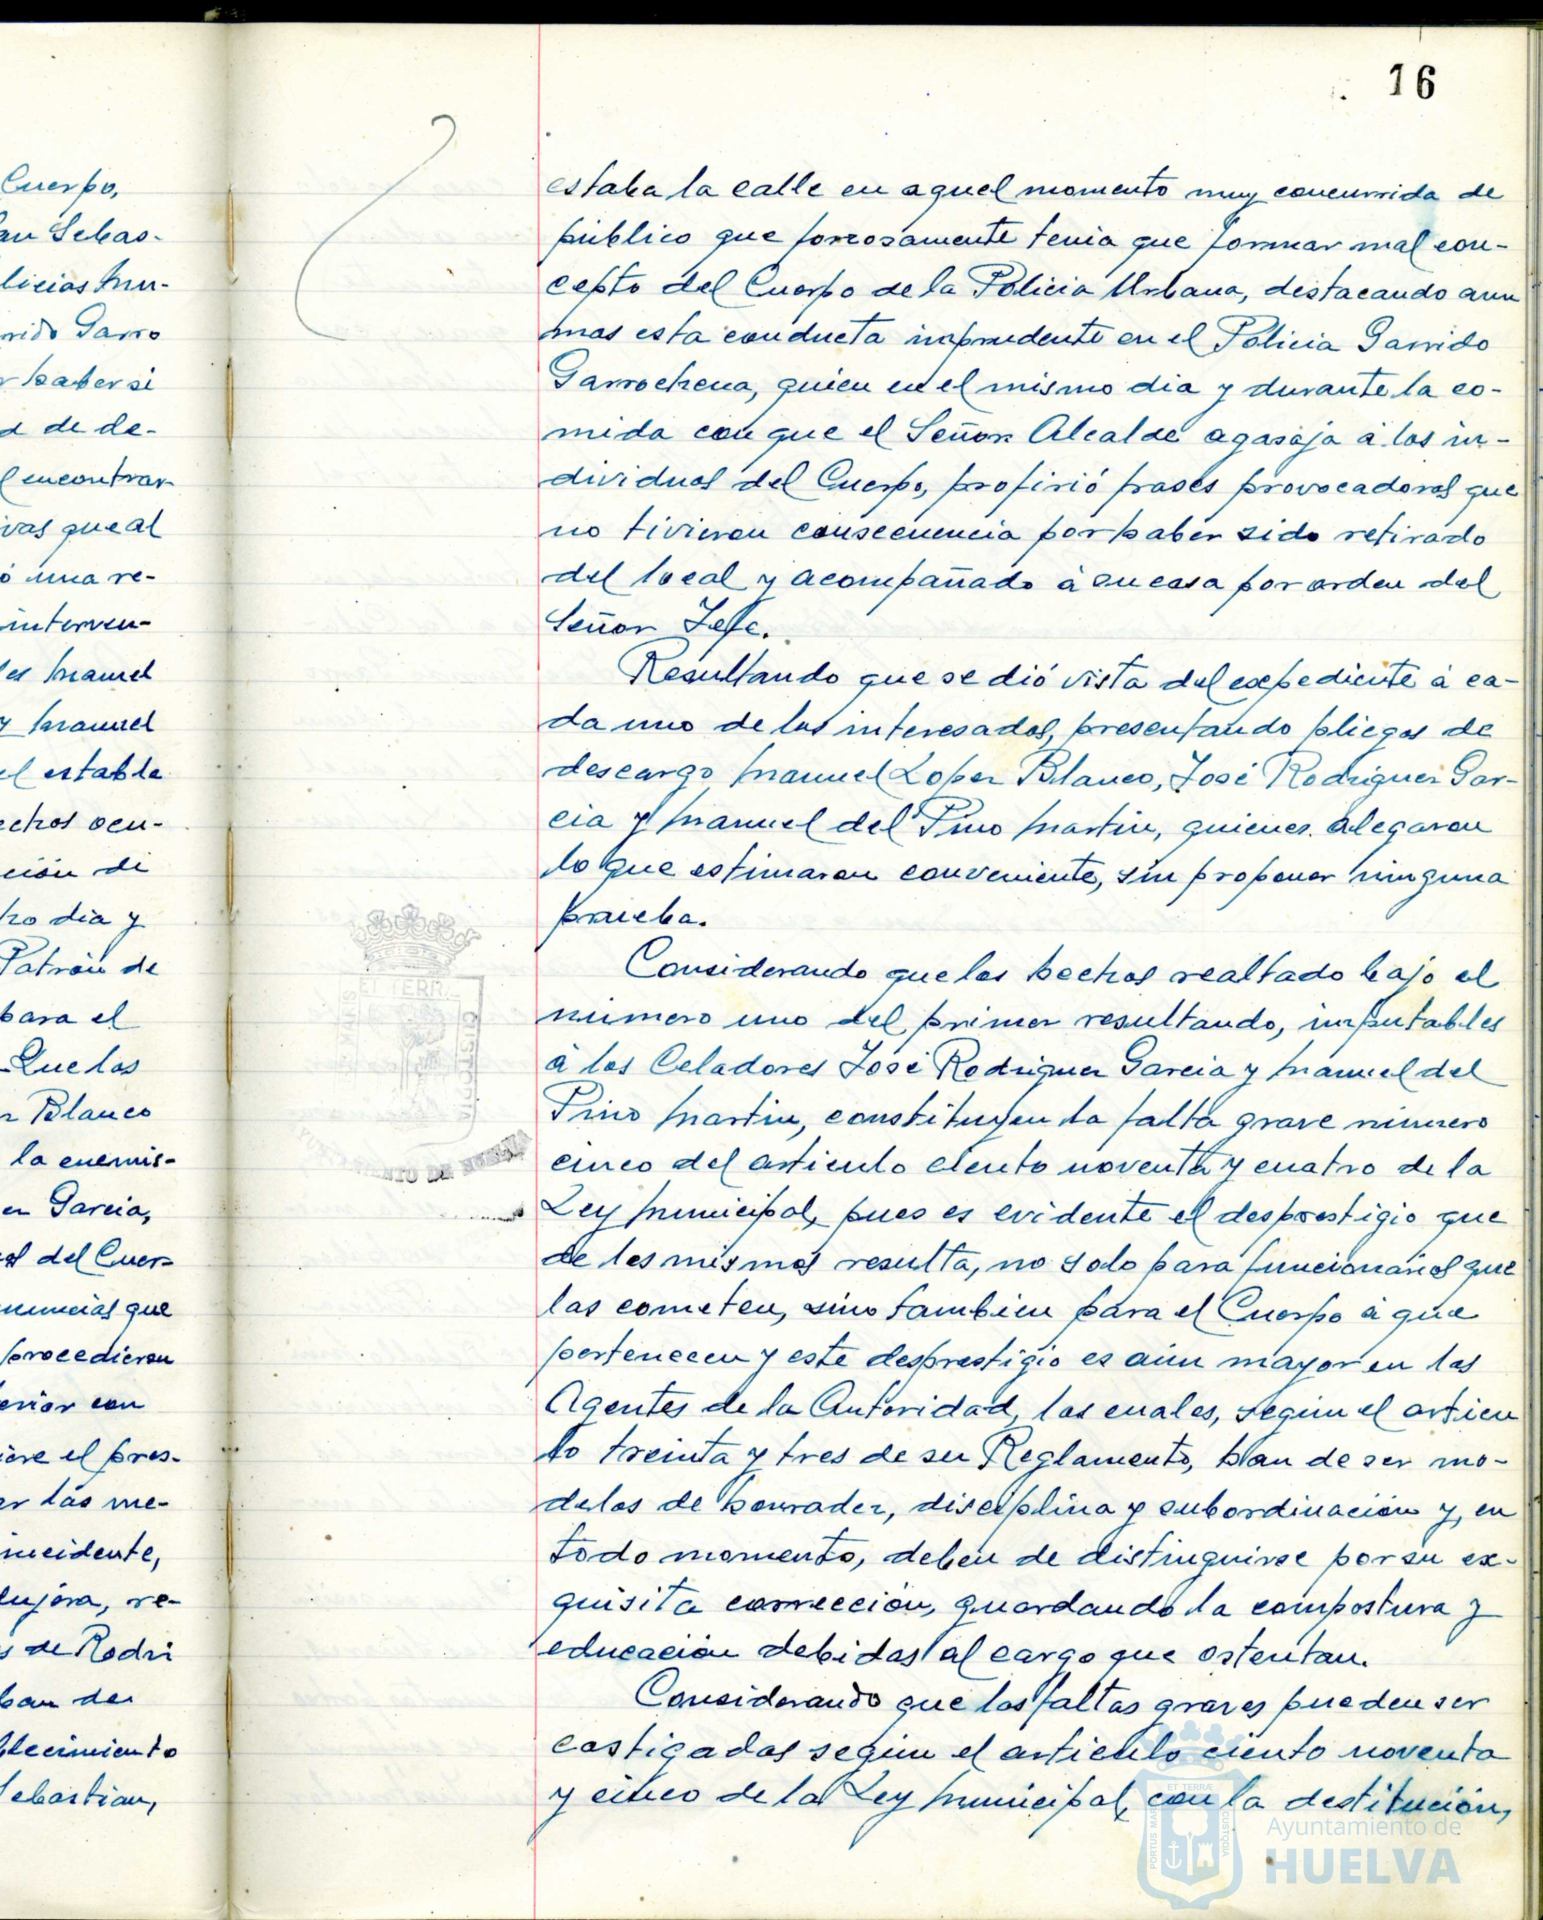 16
Cuerpo,
an Sebas-
licias Mu-
rrido Garro
r haber si
d de de-
l encontrar
ivas que al
ó una re-
interven-
les Manuel
y Manuel
el estable
echos ocu-
ción di
ho dia y
Patrón de
para el
Que los
z Blanco
la enemis-
ez Garcia,
al del Cuer-
nuncias que
procedieron
erior con
iere el pres-
er las me-
incidente,
dujera, re-
s de Rodri
ban der
blecimiento
Sebastian,
estaba la calle en aquel momento muy concurrida de
público que forzosamente tenia que formar mal con-
cepto del Cuerpo de la Policia Urbana, destacando aun
mas esta conducta imprudente en el Policia Garrido
Garrochena, quien en el mismo dia y durante la co-
mida con que el Señor Alcalde agasaja á los in-
dividuos del Cuerpo, profirió frases provocadoras que
no tivieron consecuencia por haber sido retirado
del local y acompañado á su casa por orden del
Señor Jefe.
Resultando que se dió vista del expediente á ca-
da uno de los interesados, presentando pliegos de
descargo Manuel Lopez Blanco, José Rodriguez Gar-
cia y Manuel del Pino Martin, quienes alegaron
lo que estimaron conveniente, sin proponer ninguna
prueba.
Considerando que los hechos realtado bajo el
número uno del primer resultando, imputables
á los Celadores José Rodriguez Garcia y Manuel del
Pino Martin, constituyen la falta grave número
cinco del articulo ciento noventa y cuatro de la
Ley Municipal, pues es evidente el desprestigio que
de los mismos resulta, no solo para funcionarios que
las cometen, sino tambien para el Cuerpo á que
pertenecen y este desprestigio es aún mayor en los
Agentes de la Autoridad, los cuales, según el articu
lo treinta y tres de su Reglamento, han de ser mo-
delos de honradez, disciplina y subordinación y, en
todo momento, deben de distinguirse por su ex-
quisita corrección, guardando la compostura y
educación debidas al cargo que ostentan.
Considerando que las faltas graves pueden ser
castigadas según el articulo ciento noventa
y cinco de la Ley Municipal, con la destitución,
ET TERRÆ
PORTUS MARIS
CUSTODIA
Ayuntamiento de
HUELVA